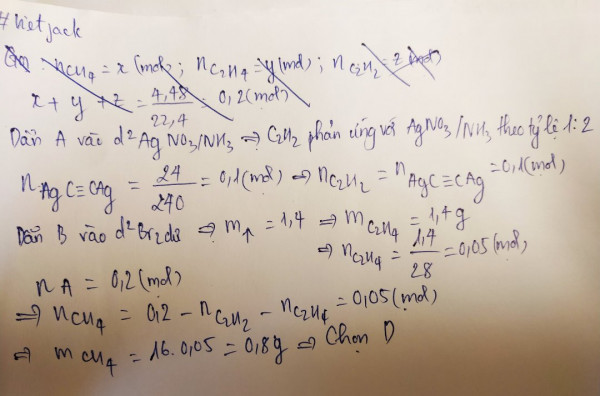 # Vietjack
Gọi: nCH4 = x (mol); nC2H4 = y (mol); nC2H2 = z (mol)
x + y + z = 4,48/22,4 = 0,2 (mol)
Dẫn A vào d² AgNO3/NH3 ⇒ C2H2 phản ứng với AgNO3/NH3 theo tỷ lệ 1:2
nAgC≡CAg = 24/240 = 0,1 (mol) ⇒ nC2H2 = nAgC≡CAg = 0,1 (mol)
Dẫn B vào d² Br2 dư ⇒ m↑ = 1,4 ⇒ mC2H4 = 1,4g
⇒ nC2H4 = 1,4/28 = 0,05 (mol)
nA = 0,2 (mol)
⇒ nCH4 = 0,2 - nC2H2 - nC2H4 = 0,05 (mol)
⇒ mCH4 = 16.0,05 = 0,8g ⇒ Chọn D